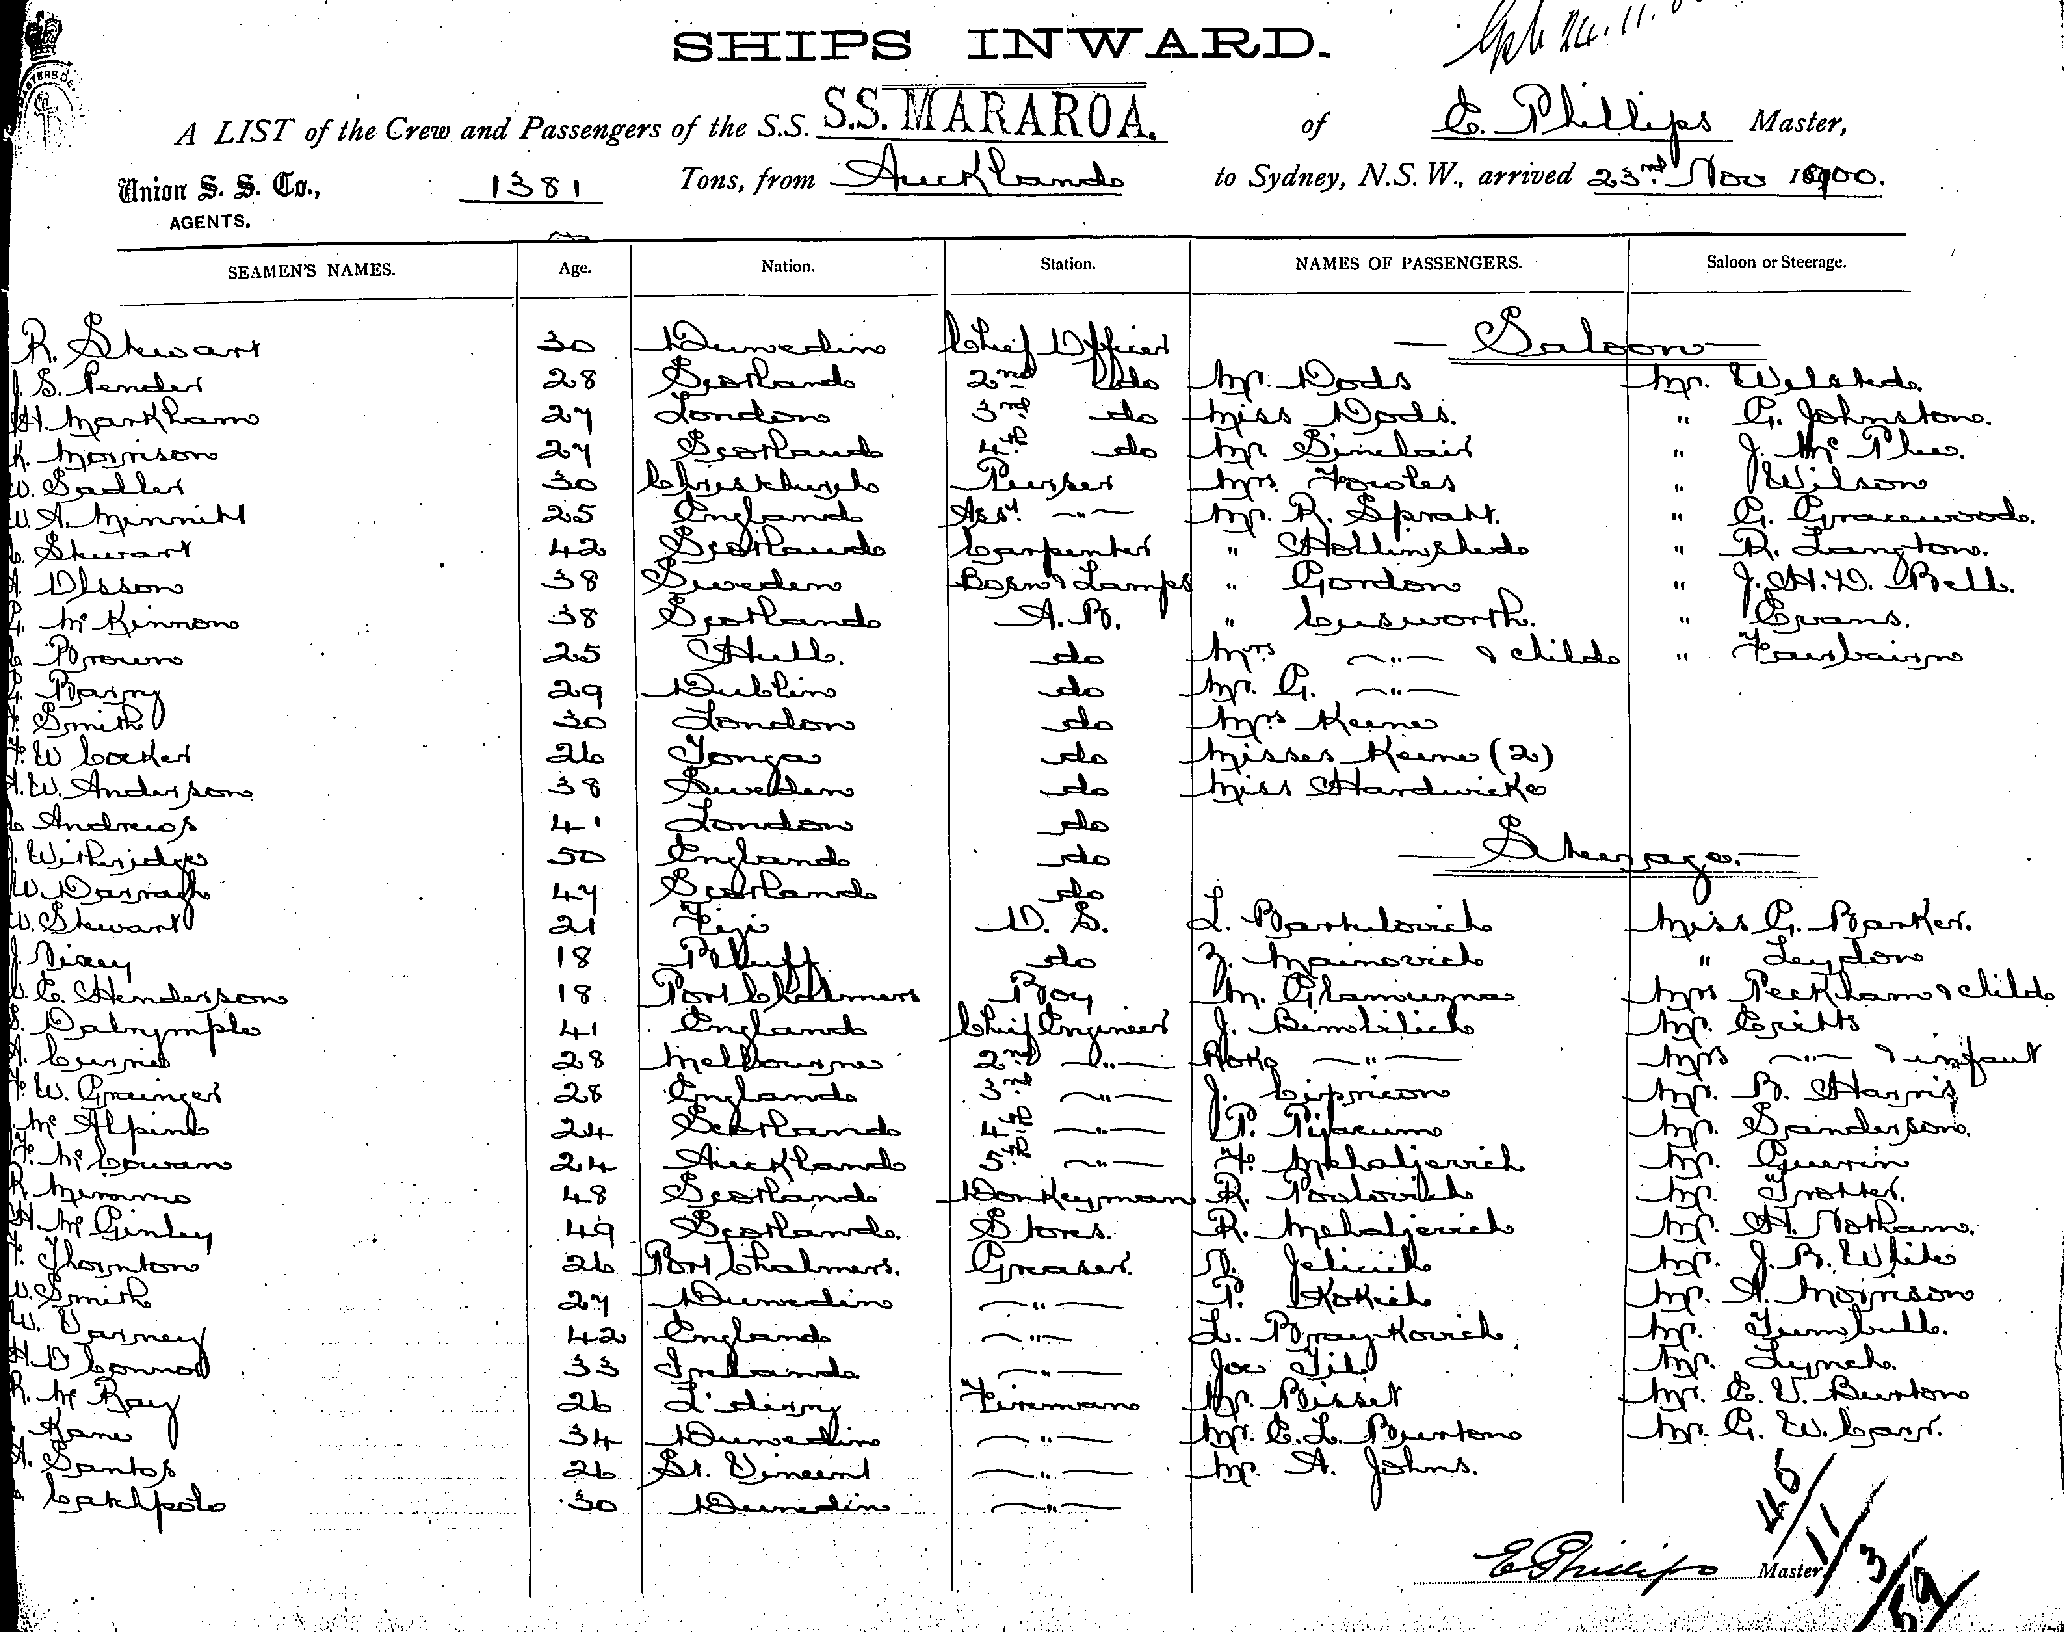 SHIPS INWARD.
A LIST of the Crew and Passengers of the S.S. S.S. MARAROA. of E. Phillips Master,
Union S. S. Co., 1381 Tons, from Auckland to Sydney, N.S.W., arrived 23rd Nov 1900.
AGENTS.
SEAMEN'S NAMES. Age. Nation. Station. NAMES OF PASSENGERS. Saloon or Steerage.
R. Stewart 30 Dunedin Chief Officer Saloon
J. S. Pender 28 Scotland 2nd do Mr. Dods Mr. Welsted
H. Markham 27 London 3rd do Miss Dods. " G. Johnston.
K. Morrison 27 Scotland 4th do Mr Sinclair " J. McPhee.
W. Sadler 30 Christchurch Purser Mrs. Fowles " Wilson
W. A. Minnitt 25 England Asst. " Mr. R. Spratt. " G. Gracewood.
Stewart 42 Scotland Carpenter " Hollinshed " R. Langton.
Olsson 38 Sweden Bosn & Lamps " Gordon " J. H. D. Bell.
McKinnon 38 Scotland A.B. " Cusworth. " Evans.
Brown 25 Hull. do Mrs " & child " Fairbairn
Barry 29 Dublin do Mr. G. "
Smith 30 London do Mrs Keene
W Cocker 26 Tonga do Misses Keene (2)
A. W. Anderson 38 Sweden do Miss Hardwicke
Andrews 41 London do
Witheridge 50 England do Steerage.
W. Darragh 47 Scotland do
W. Stewart 21 Fiji O. S. L. Bartulovich Miss G. Barker.
J. 18 Bluff do Z. Mainovich " Leydon
C. Henderson 18 Port Chalmers Boy M. Glamuzina Mrs Peckham & child
Dalrymple 41 England Chief Engineer J. Mr.
Currie 28 Melbourne 2nd " Roko " Mrs " & infant
W. Grainger 28 England 3rd " J. Mr. B. Harris
McAlpine 24 Scotland 4th " P. Mr. Sanderson.
McCowan 24 Auckland 5th " Mehaljevich Mr. Guerin
48 Scotland Donkeyman R. Mr. Trotter.
McGinley 49 Scotland. Stores. R. Mehaljevich Mr. H. Notham.
Thornton 26 Port Chalmers. Greaser. Jelicich Mr. J. B. White
Smith 27 Dunedin " P. Kokich Mr. A. Morrison
W. Varney 42 England " L. Braykovich Mr. Turnbull.
H. O'Connor 33 Ireland " Joe Mr. Lynch.
R. McKay 26 L'derry Fireman Mr. Bisset Mr. E. V. Burton
Kane 34 Dunedin " Mr. E. L. Burton Mr. G. W. Carr.
A. Santos 26 St. Vincent " Mr A. Johns.
Catchpole 30 Dunedin "
46/11/3/59
E Phillips Master